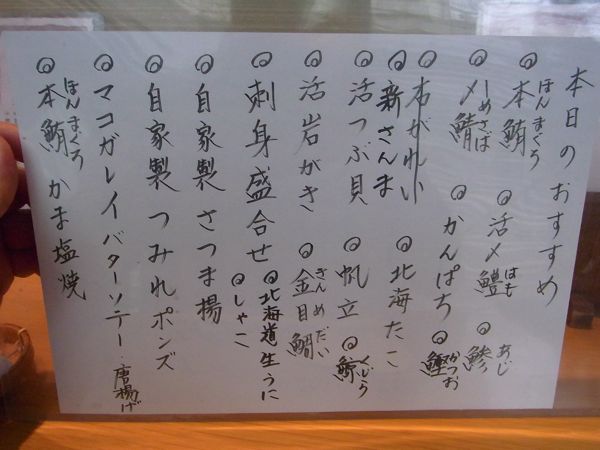 本日のおすすめ
◎本鮪 ほんまぐろ ◎活〆鱧 はも ◎鯵 あじ
◎〆鯖 しめさば ◎かんぱち ◎鰹 かつお
◎本がれい
◎新さんま ◎北海たこ
◎活つぶ貝 ◎帆立 ◎鯨 くじら
◎活岩がき ◎金目鯛 きんめだい
◎刺身盛合せ ◎北海道生うに
◎しゃこ
◎自家製 さつま揚
◎自家製 つみれポンズ
◎マコガレイ バターソテー・唐揚げ
◎本鮪 ほんまぐろ かま塩焼